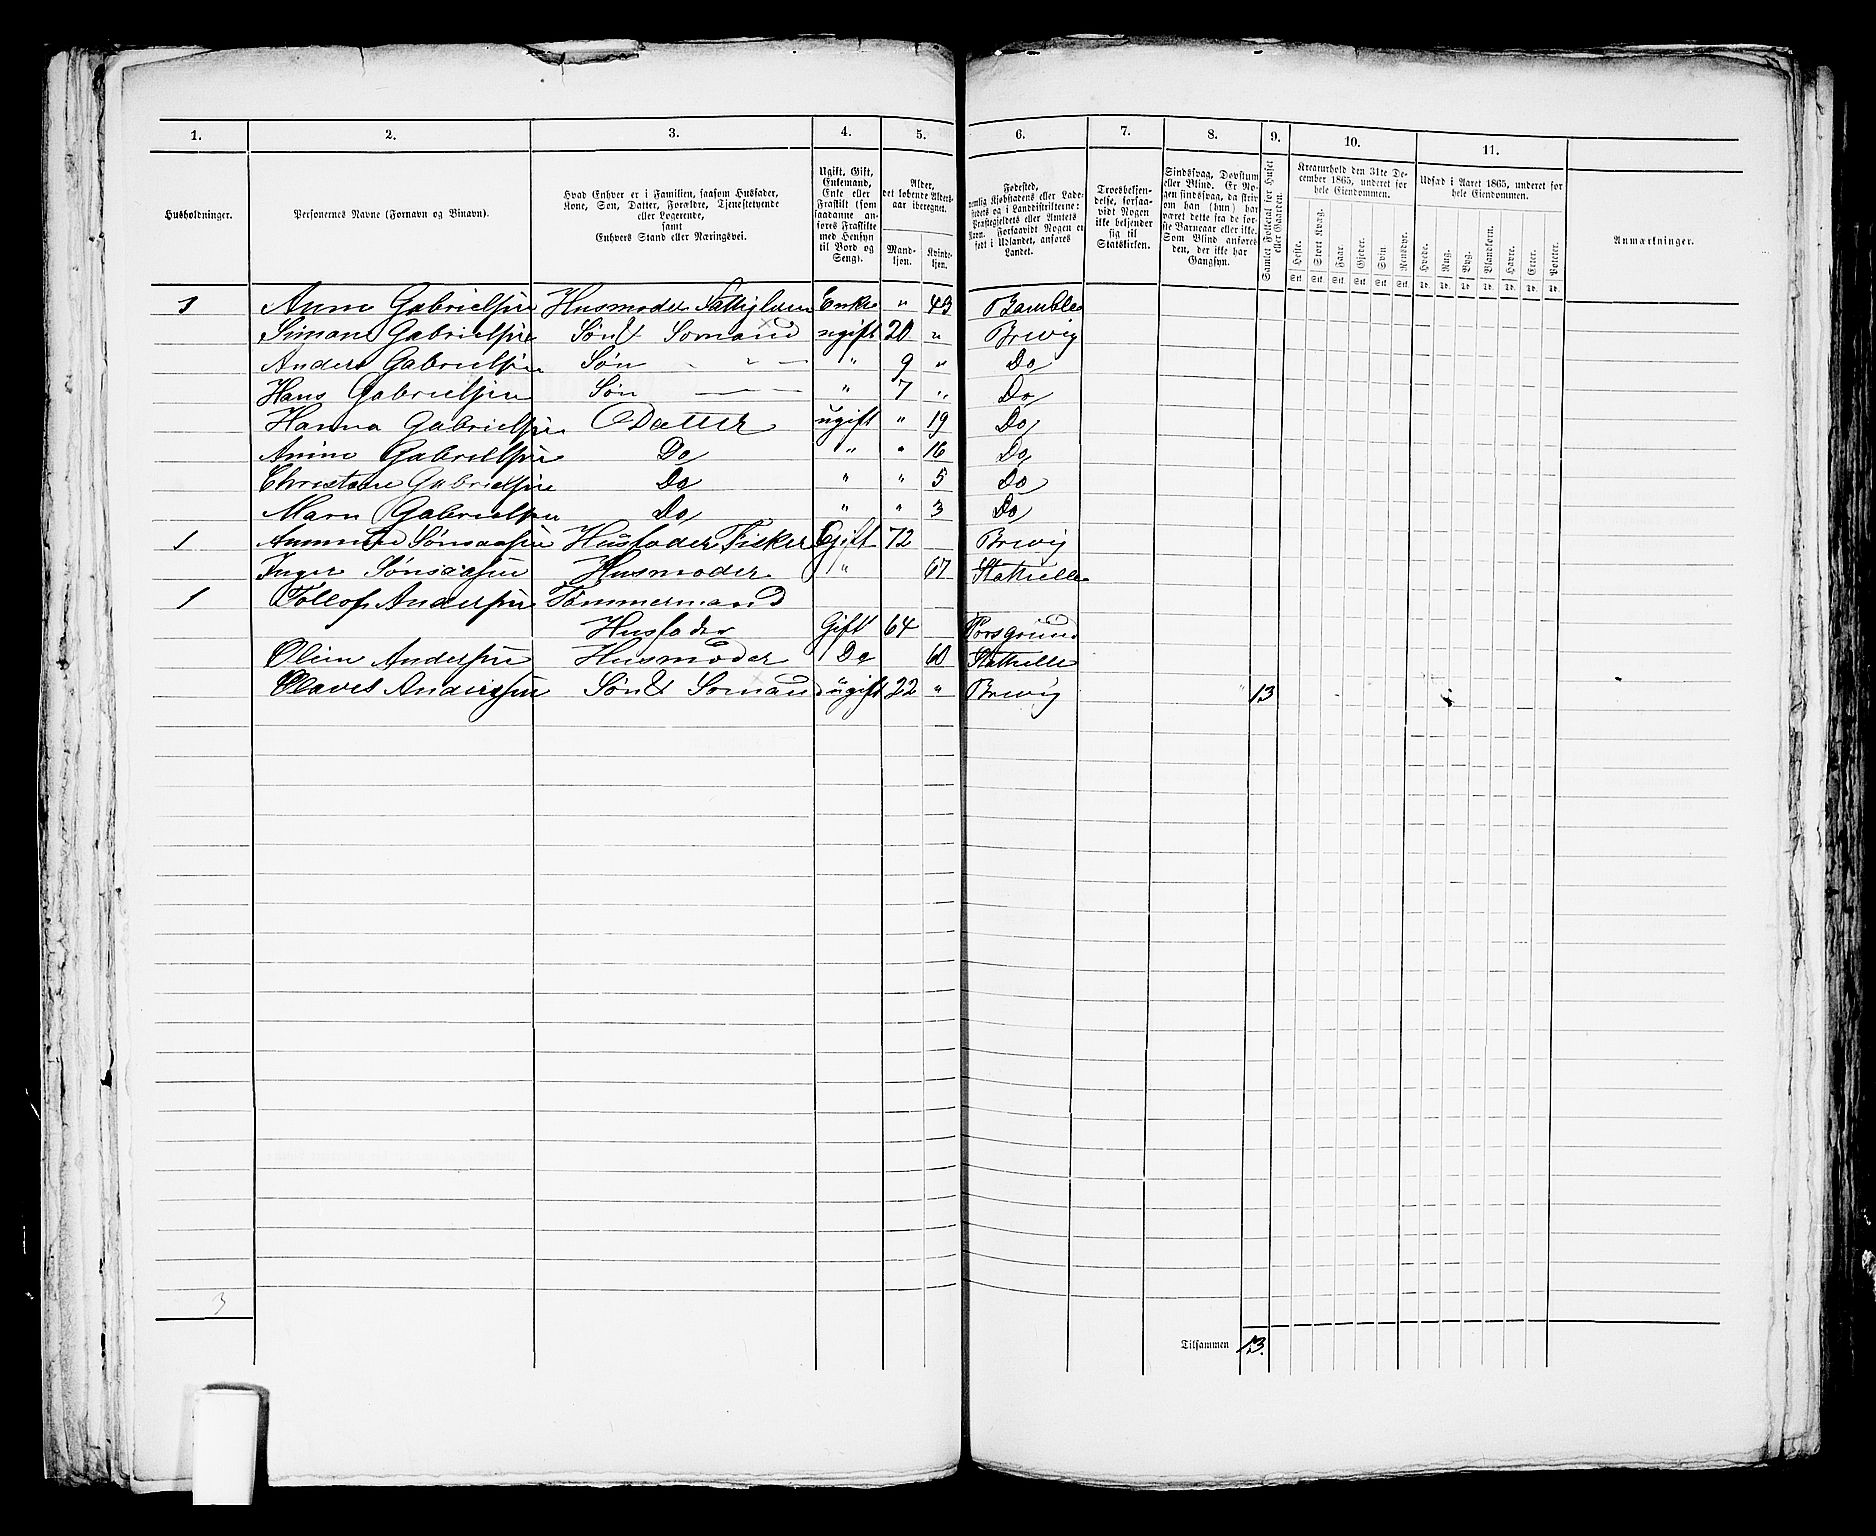 1. 2. 3. 4. 5. 6. 7. 8. 9. 10. 11.
Husholdninger.
Personernes Navne (Fornavn og Binavn).
Hvad Enhver er i Familien, saasom Husfader,
Kone, Søn, Datter, Forældre, Tjenestetyende
eller Logerende,
samt
Enhvers Stand eller Næringsvei.
Ugift, Gift,
Enkemand,
Enke eller
Fraskilt (som
saadanne an-
føres Fraskilte
med Hensyn
til Bord og
Seng).
Alder,
det løbende Alders-
aar iberegnet.
Mand-
kjøn.
Kvinde-
kjøn.
Fødested,
nemlig Kjøbstadens eller Lade-
stedets og i Landdistrikterne:
Præstegjeldets eller Amtets
Navn. Forsaavidt Nogen er
født i Udlandet, anføres
Landet.
Troesbekjen-
delse, forsaa-
vidt Nogen
ikke bekjender
sig til
Statskirken.
Sindssvag, Døvstum
eller Blind. Er No-
gen sindssvag, da skriv
om han (hun) har
været dette fra de før-
ste Barneaar eller ikke.
Som Blind anføres
den, der ikke har
Gangsyn.
Samlet Folketal for Huset
eller Gaarden.
Kreaturhold den 31te De-
cember 1865, underet for
hele Eiendommen.
Heste.
Stort Kvæg.
Faar.
Gjeder.
Svin.
Rensdyr.
Stk. Stk. Stk. Stk. Stk. Stk.
Udsæd i Aaret 1865, underet for
hele Eiendommen.
Hvede.
Rug.
Byg.
Blandkorn.
Havre.
Erter.
Poteter.
Td. Td. Td. Td. Td. Td. Td.
Anmærkninger.
1 Anne Gabrielsen Husmoder Fattiglem Enke " 43 Bamble
Simon Gabrielsen Søn & Sømand ugift 20 " Brevig
Anders Gabrielsen Søn - " - " 9 " Do
Hans Gabrielsen Søn — — " 7 " Do
Hanna Gabrielsen Datter ugift " 19 Do
Gabrielsen Do " " 16 Do
Gabrielsen Do " " 5 Do
Maren Gabrielsen Do " " 3 Do
1 Husfader Fisker Gift 72 Brevig
Inger Husmoder " 67 Stathelle
1 Andersen Tømmermand
Husfader Gift 64 Porsgrund
Andersen Husmoder Do 60 Stathelle
Olaves Andersen Søn & Sømand ugift 22 " Brevig 13
3
Tilsammen 13.